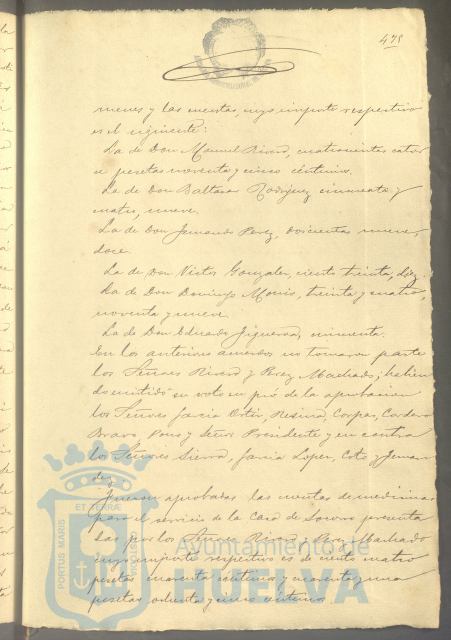 478
menes y las cuentas, cuyo importe respectivo
es el siguiente:
La de Don Manuel Rivero, cuatrocientas cator
ce pesetas noventa y cinco céntimos.
La de Don Baltasar Rodriguez cincuenta y
cuatro, nueve.
La de Don Fernando Perez, doscientas nueve,
doce.
La de Don Victor Gonzalez, ciento treinta, diez.
La de Don Domingo Moris, treinta y cuatro,
noventa y nueve.
La de Don Eduardo Figueroa, cincuenta.
En los anteriores acuerdos no tomaron parte
los Señores Rivero y Perez Machado; habien
do emitido su voto en pró de la aprobacion
los Señores Garcia Ortiz, Resina, Corpas, Cordero
Bravo, Pons y Señor Presidente y en contra
los Señores Sierra, Garcia Lopez, Coto y Fernan
dez.
Fueron aprobadas las cuentas de medicinas
para el servicio de la Casa de Socorro presenta
das por los Señores Rivero y Perez Machado
cuyo importe respectivo es de ciento cuatro
pesetas cuarenta céntimos y cuarenta y una
pesetas ochenta y cinco céntimos
PORTUS MARIS ET TERRÆ CUSTODIA
Ayuntamiento de
HUELVA